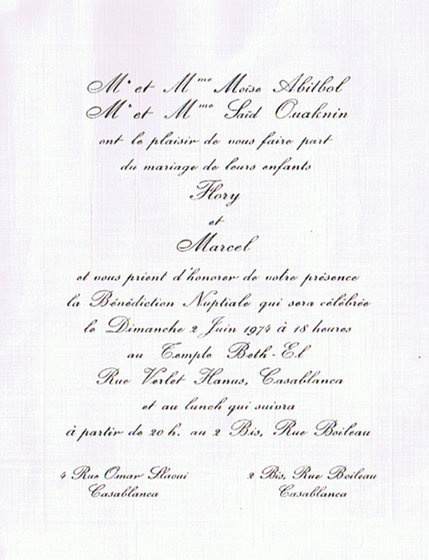 Mr et Mme Moïse Abitbol
Mr et Mme Saïd Ouaknin
ont le plaisir de vous faire part
du mariage de leurs enfants
Flory
et
Marcel
et vous prient d'honorer de votre présence
la Bénédiction Nuptiale qui sera célébrée
le Dimanche 2 Juin 1974 à 18 heures
au Temple Beth-El
Rue Verlet Hanus, Casablanca
et au lunch qui suivra
à partir de 20 h. au 2 Bis, Rue Boileau
4 Rue Omar Slaoui
Casablanca
2 Bis, Rue Boileau
Casablanca